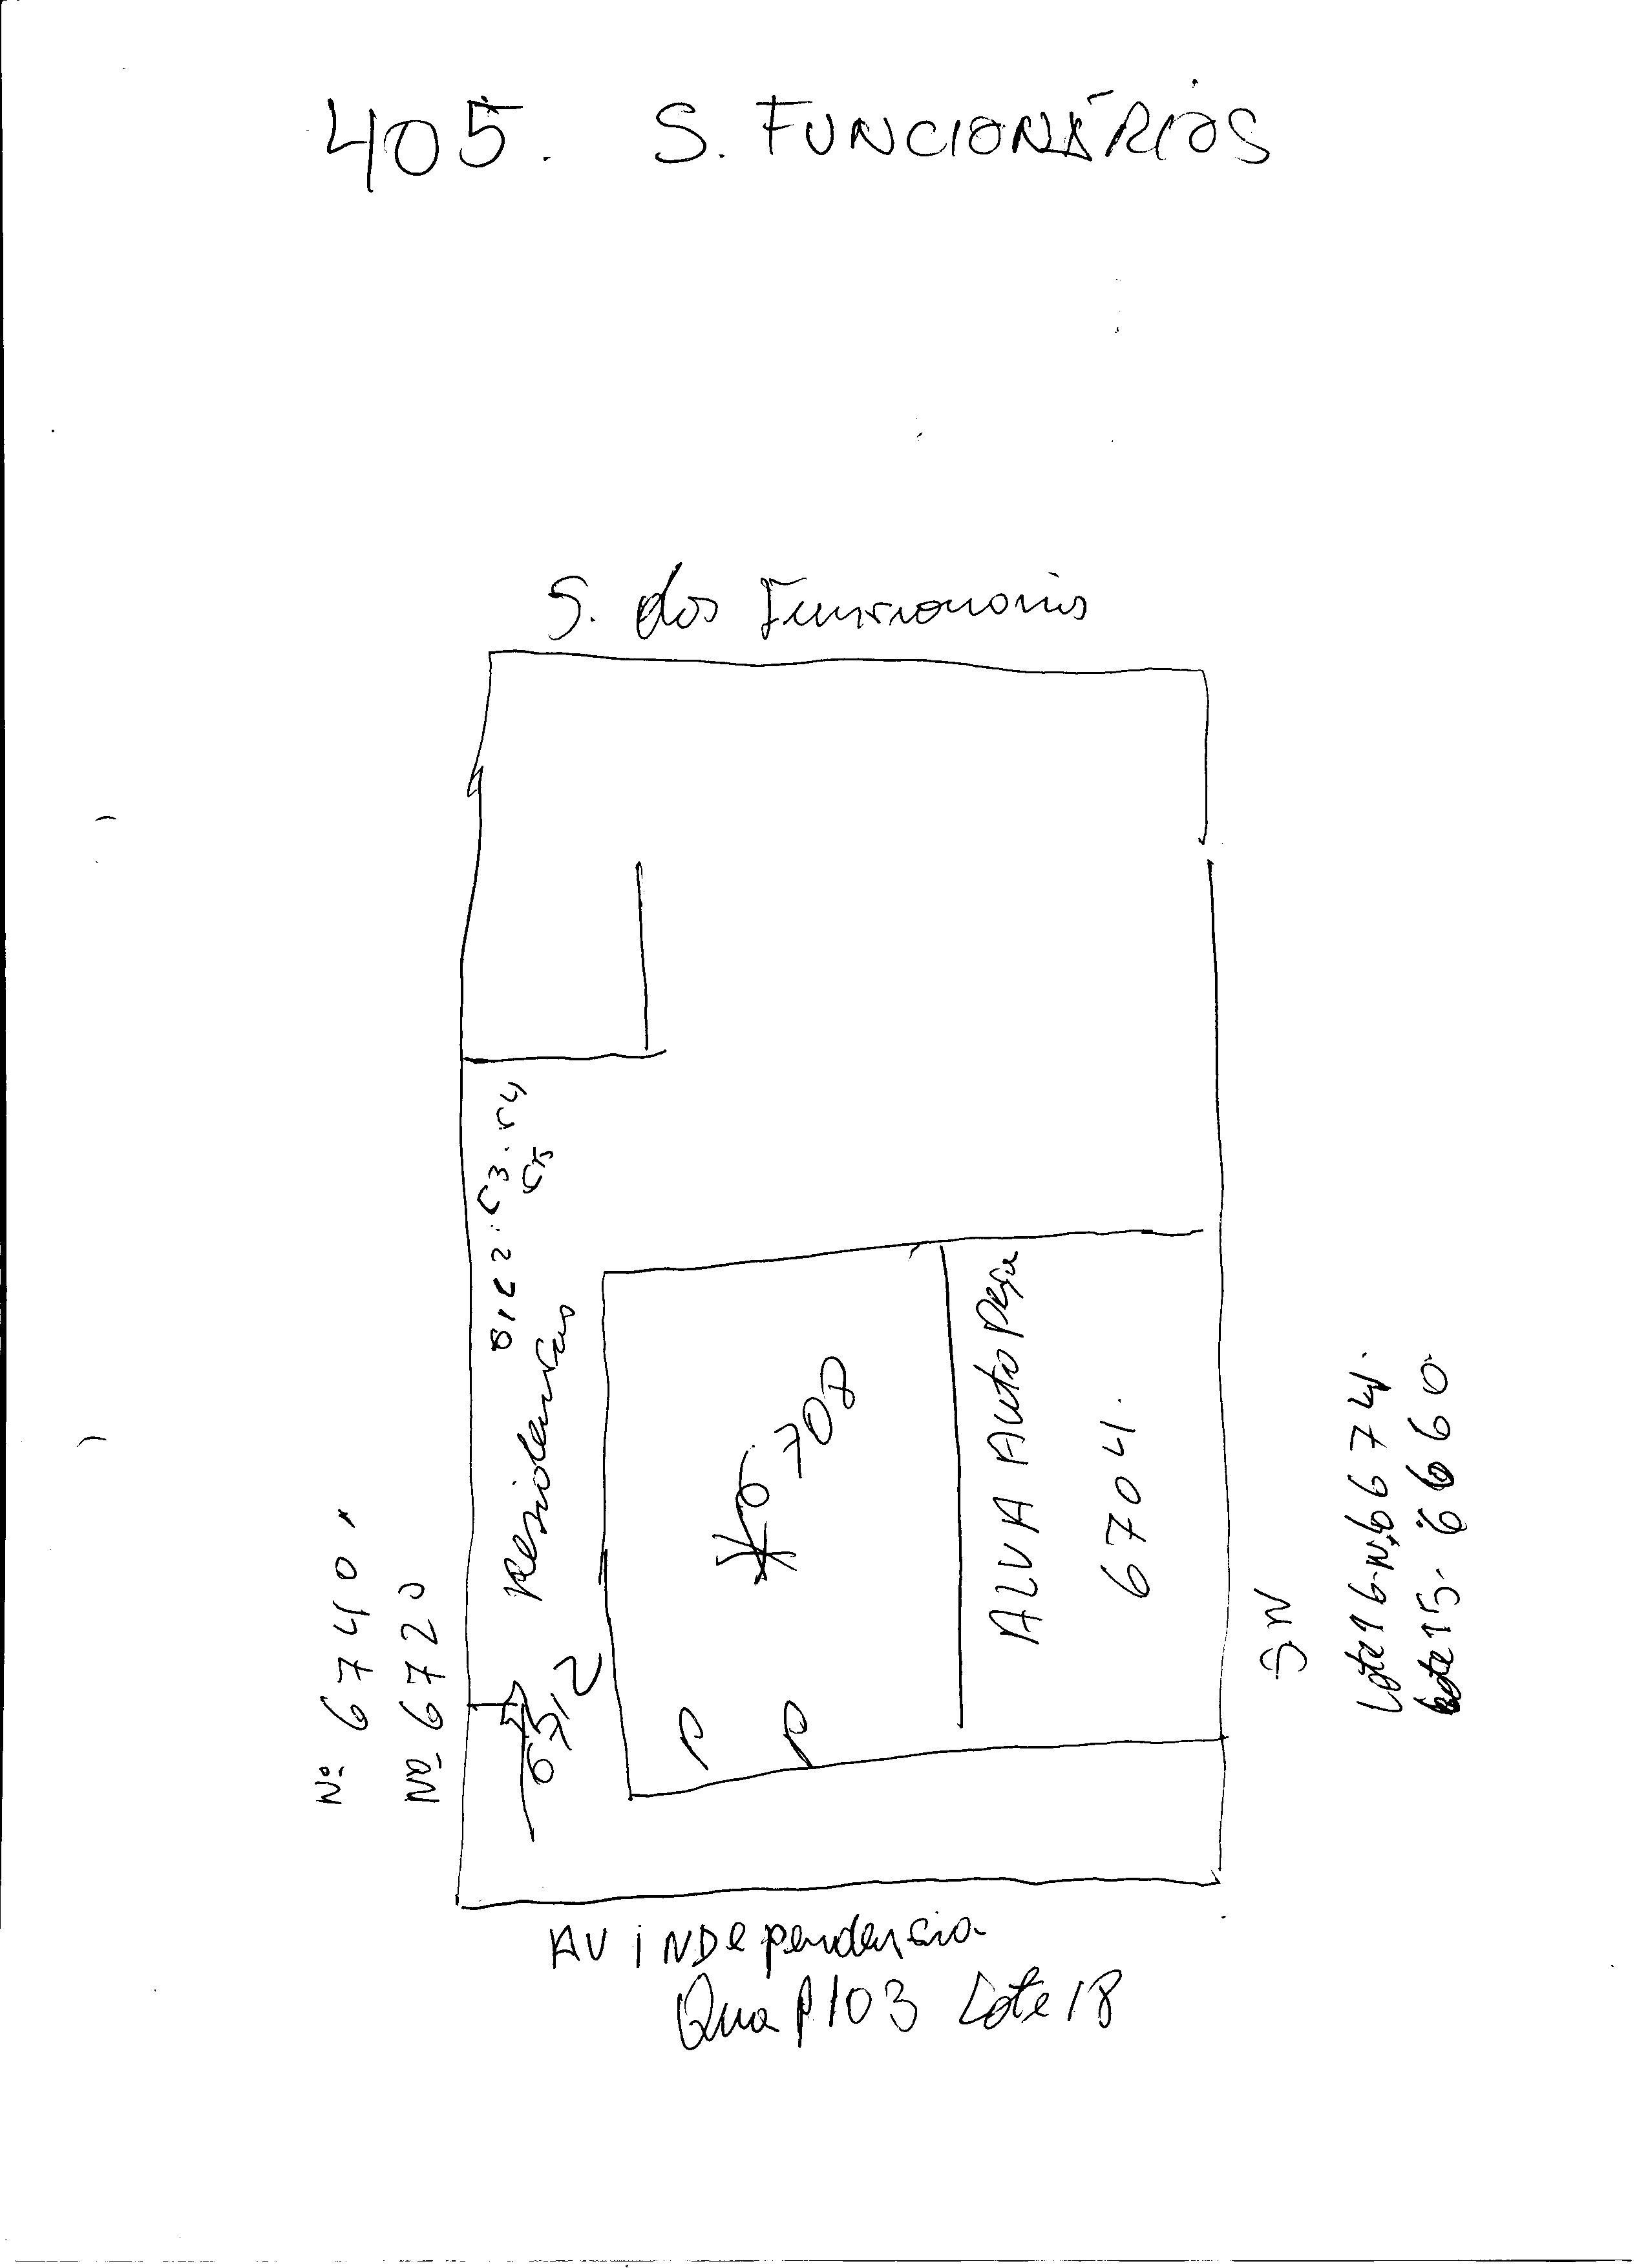 405. S. FUNCIONÁRIOS
S. dos Funcionarios
C1 C2. C3. C4
C5
Residencias
6712
708
P P
ALVA Auto Peça
6704.
Nº 6740.
Nº 6720
SN
Lote 16. Nº 6674.
Lote 15. 6660
AV iNDependencia
Qua P103 Lote 18